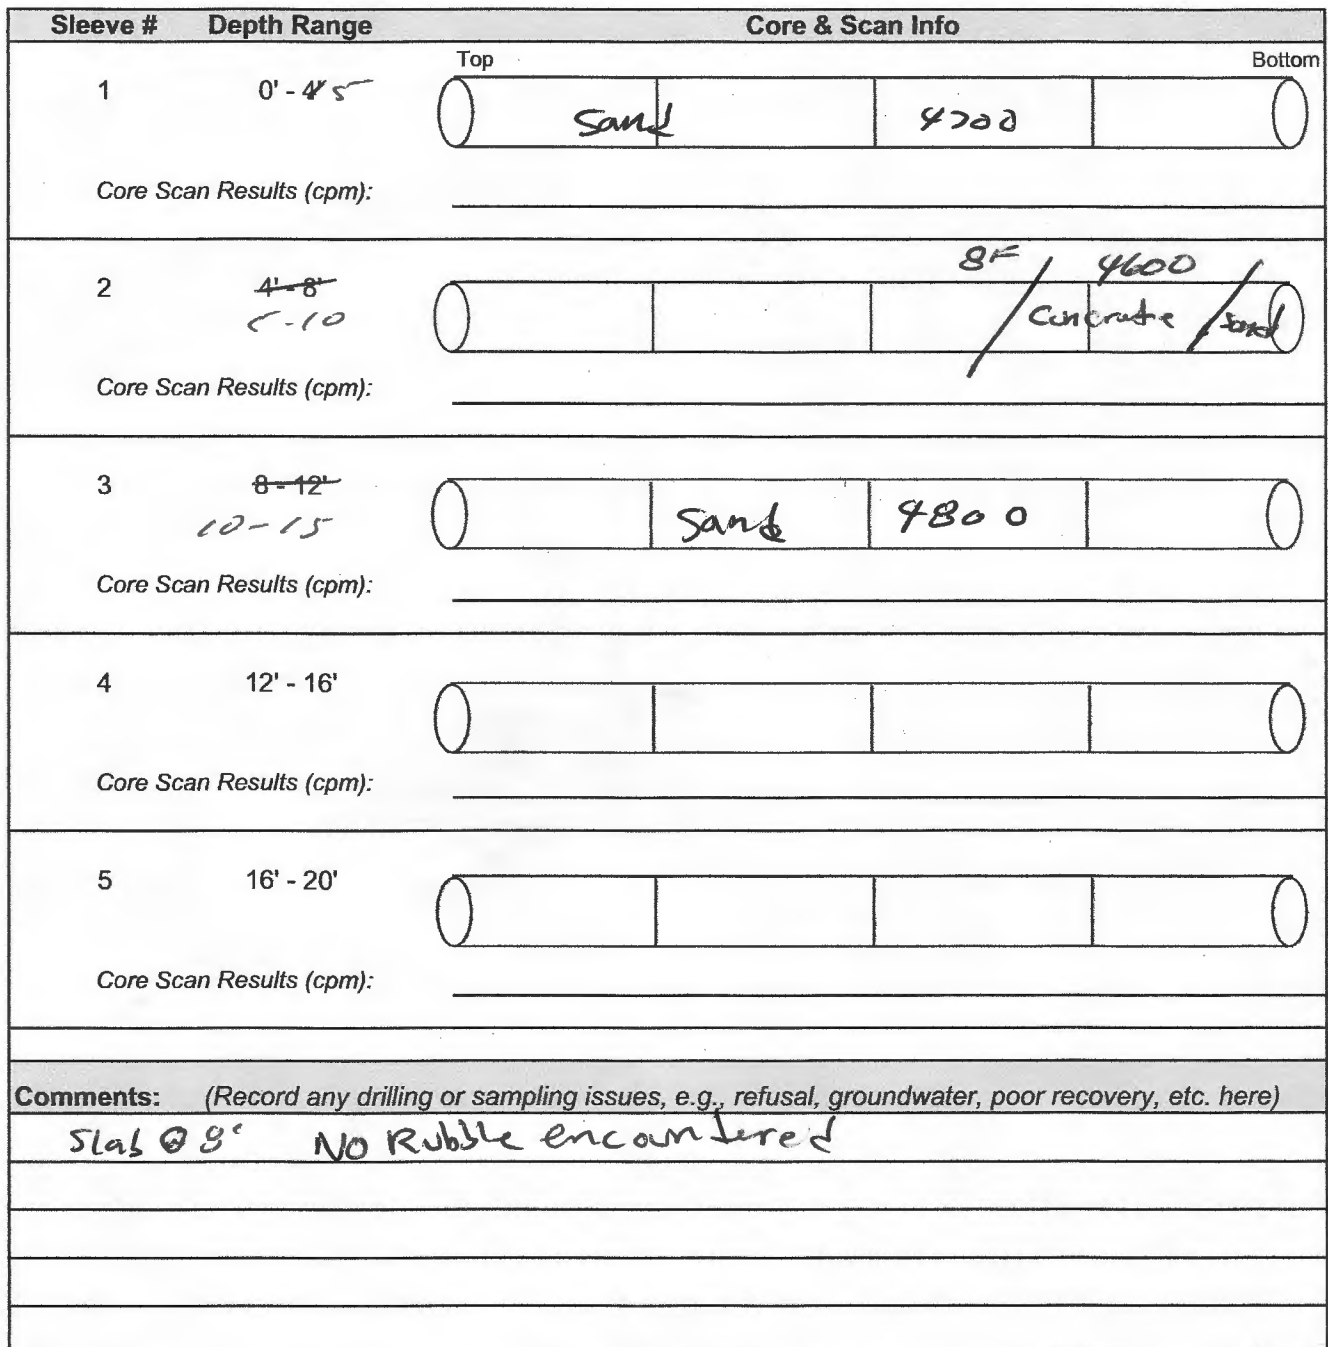 Sleeve # Depth Range Core & Scan Info
Top Bottom
1 0' - 4' 5
Sand 4700
Core Scan Results (cpm):
8F 4600
2 4' - 8'
5-10
Concrate Sand
Core Scan Results (cpm):
3 8 - 12'
10-15
Sand 4800
Core Scan Results (cpm):
4 12' - 16'
Core Scan Results (cpm):
5 16' - 20'
Core Scan Results (cpm):
Comments: (Record any drilling or sampling issues, e.g., refusal, groundwater, poor recovery, etc. here)
Slab @ 8' No Rubble encountered